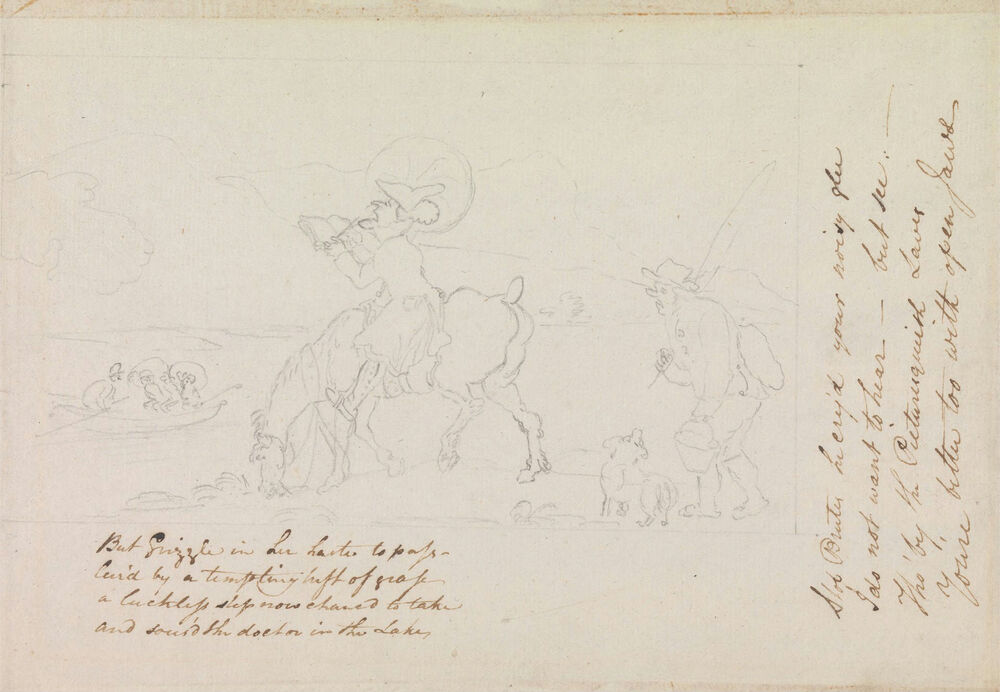 But Grizzle in her haste to pass
lur'd by a tempting tuft of grass
a luckless slip now chanc'd to take
and sous'd the doctor in the Lake
Brutes he cry'd your noisy glee
I do not want to hear — but see. —
Tho' by the Picturesquish Laws
You're better too with open Jaws